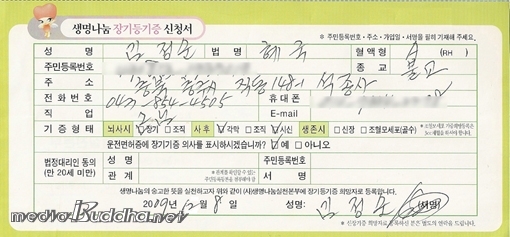 생명나눔 장기등기증 신청서
* 주민등록번호·주소·가입일·서명을 필히 기재해 주세요.
성 명 김정순 법 명 혜국 혈액형 A (RH )
주민등록번호 종 교 불교
주 소 충북 충주시 직동 148-1 석종사
전화번호 043-854-4505 휴 대 폰
직 업 스님 E-mail
기증 형태 뇌사시 장기 조직 사후 각막 조직 시신 생존시 신장 조혈모세포(골수)
운전면허증에 장기기증 의사를 표시하시겠습니까? 예 아니오
법정대리인 동의 (만 20세 미만) 성 명 주민등록번호
관 계 서 명
생명나눔의 숭고한 뜻을 실천하고자 위와 같이 (사)생명나눔실천본부에 장기기증 희망자로 등록합니다.
2009년 12월 8일 성명: 김정순 (서명)
mediaBuddha.net